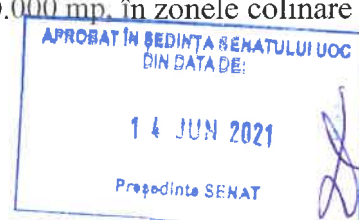 0.000 mp, în zonele colinare
APROBAT ÎN ȘEDINȚA SENATULUI UOC
DIN DATA DE:
14 JUN 2021
Președinte SENAT